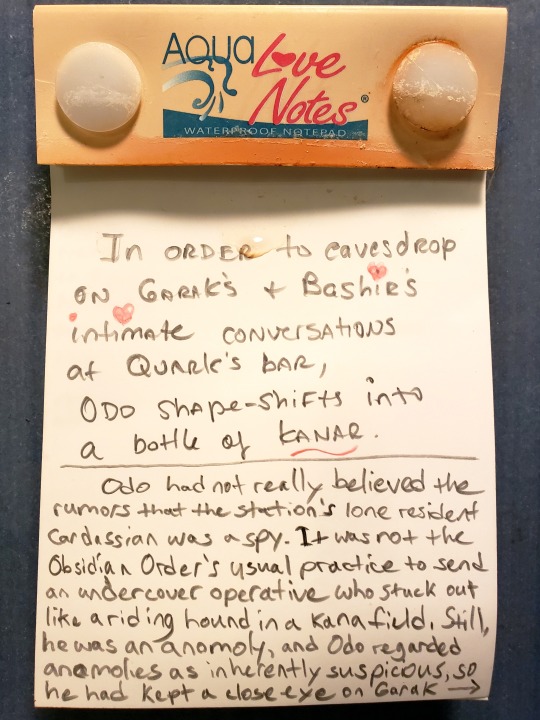 AQUA Love Notes®
WATERPROOF NOTEPAD
In ORDER to eavesdrop
ON GARAK'S + Bashir's
intimate CONVERSATIONS
at QUARK'S BAR,
ODO shape-shifts into
a bottle of KANAR.
Odo had not really believed the
rumors that the station's lone resident
Cardassian was a spy. It was not the
Obsidian Order's usual practice to send
an undercover operative who stuck out
like a riding hound in a kana field. Still,
he was an anomoly, and Odo regarded
anomolies as inherently suspicious, so
he had kept a close eye on Garak →